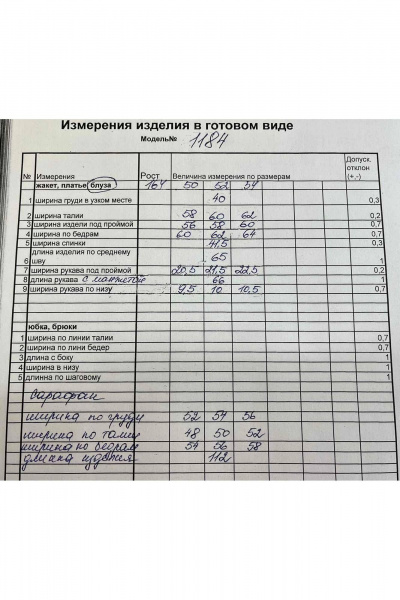 Измерения изделия в готовом виде
Модель№ 1184
№ Измерения Рост Величина измерения по размерам Допуск. отклон (+,-)
жакет, платье, блуза 164 50 52 54
1 ширина груди в узком месте 40 0,3
2 ширина талии 58 60 62 0,2
3 ширина издели под проймой 56 58 60 0,7
4 ширина по бедрам 60 62 64 0,7
5 ширина спинки 41,5 0,3
6 длина изделия по среднему шву 65 1
7 ширина рукава под проймой 20,5 21,5 22,5 0,2
8 длина рукава с манжетой 66 1
9 ширина рукава по низу 9,5 10 10,5 1
юбка, брюки
1 ширина по линии талии 0,7
2 ширина по лини бедер 0,7
3 длина с боку 1
4 ширина в низу 1
5 длинна по шаговому 1
Сарафан
ширина по груди 52 54 56
ширина по талии 48 50 52
ширина по бедрам 54 56 58
длина изделия 112